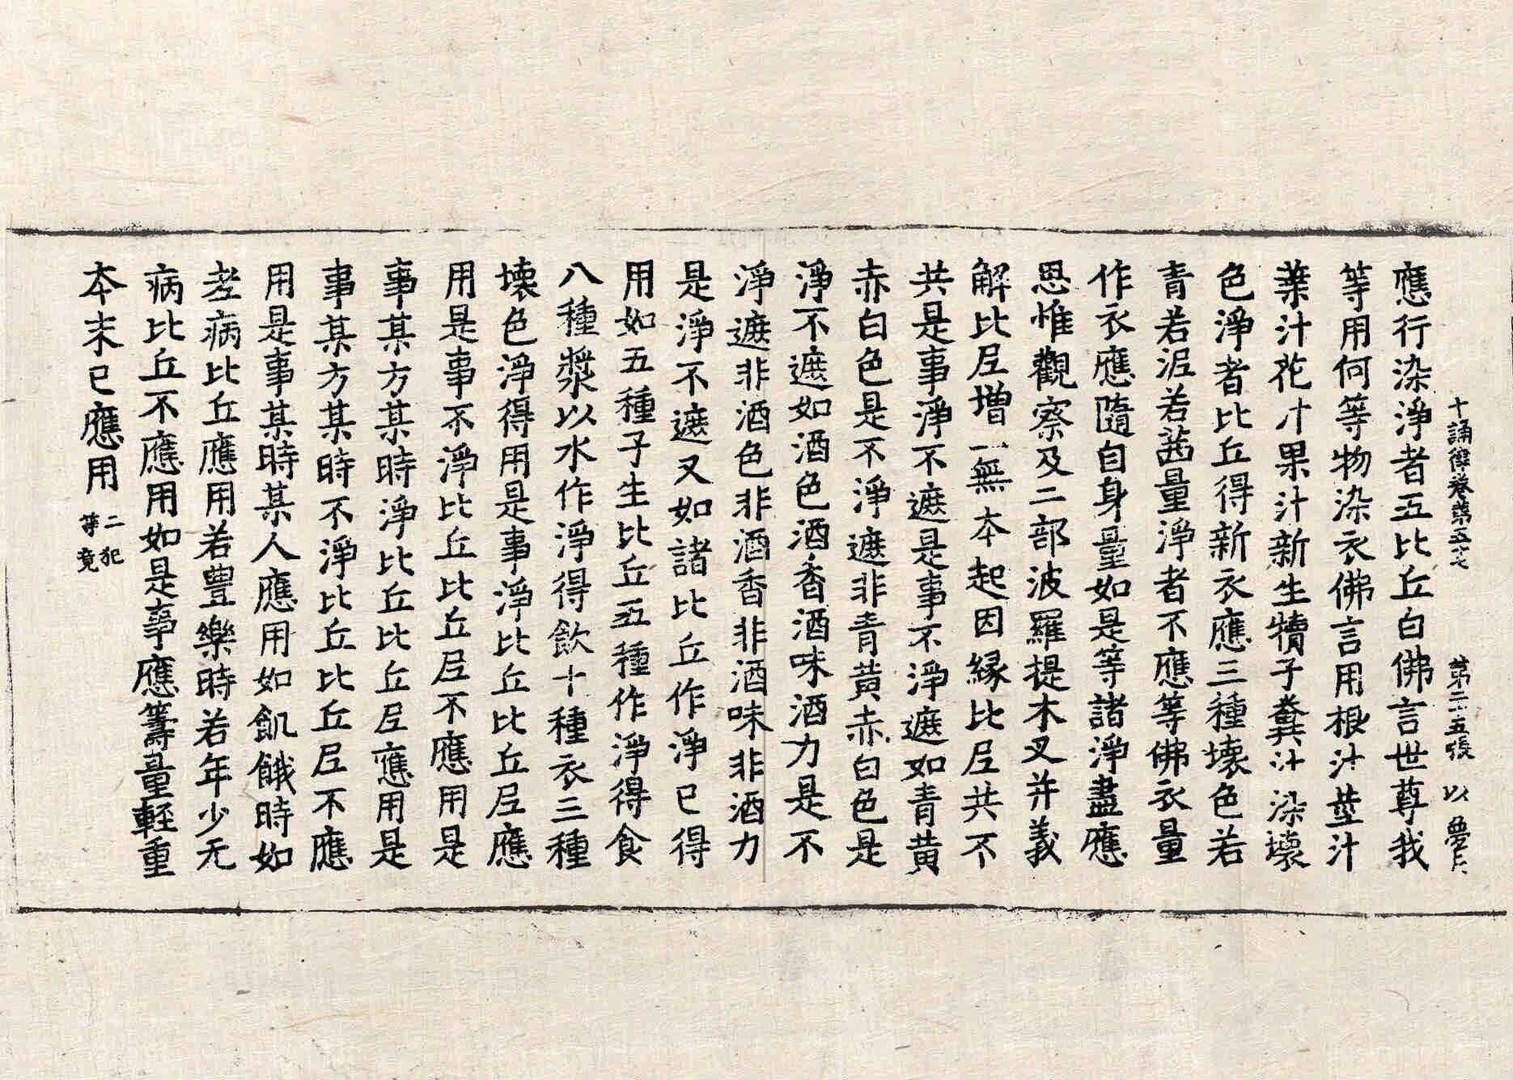 十誦律卷第五十七 第二十五張 以
應行染淨者五比丘白佛言世尊我
等用何等物染衣佛言用根汁莖汁
葉汁花汁果汁新生犢子糞汁染壞
色淨者比丘得新衣應三種壞色若
青若泥若茜量淨者不應等佛衣量
作衣應隨自身量如是等諸淨盡應
思惟觀察及二部波羅提木叉并義
解比尼增一無本起因緣比尼共不
共是事淨不遮是事不淨遮如青黃
赤白色是不淨遮非青黃赤白色是
淨不遮如酒色酒香酒味酒力是不
淨遮非酒色非酒香非酒味非酒力
是淨不遮又如諸比丘作淨已得
用如五種子生比丘五種作淨得食
八種漿以水作淨得飲十種衣三種
壞色淨得用是事淨比丘比丘尼應
用是事不淨比丘比丘尼不應用是
事某方某時淨比丘比丘尼應用是
事某方某時不淨比丘比丘尼不應
用是事某時某人應用如飢餓時如
老病比丘應用若豐樂時若年少无
病比丘不應用如是事應籌量輕重
本末已應用 二犯等竟